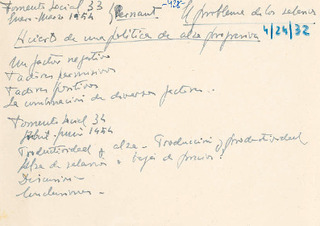 Fomento Social 33 -428- El problema de los salarios
Enero-Marzo 1954
Acierto de una política de alza progresiva 4/24/32
Un factor negativo
Factores permisivos
Factores positivos
La combinación de diversos factores.-
Fomento Social 34
Abril-junio 1954
Productividad y alza - Producción y productividad
Alza de salarios o baja de precios?
Discusión
Conclusiones -